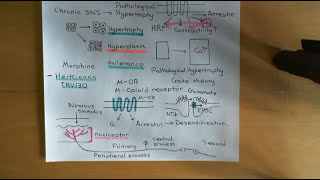 Chronic SNS → Pathological Hypertrophy
Arrestin
HR↑ Contractility↑
Hypertrophy
Hyperplasia
Ca²⁺
Morphine tolerance Pathological Hypertrophy
- Herkinorin M-OR Crate theory
TRV130 M-Opioid receptor Glutamate
Noxious stimulus
M-OR
NT↓
EPSP
Gi Arrestin → Desensitization
nociceptor
Primary central process Second
Peripheral process